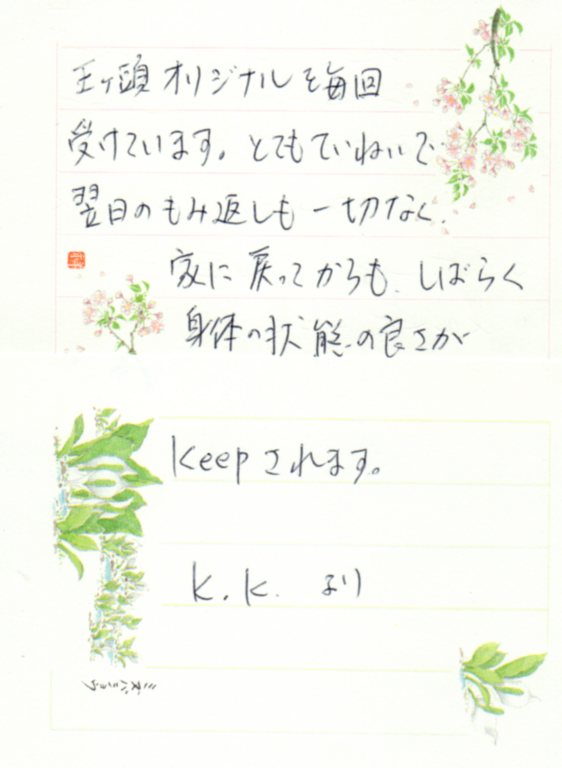 王ヶ頭オリジナルを毎回
受けています。とてもていねいで
翌日のもみ返しも一切なく、
家に戻ってからも、しばらく
身体の状態の良さが
keepされます。
K.K. より
ミズバショウ